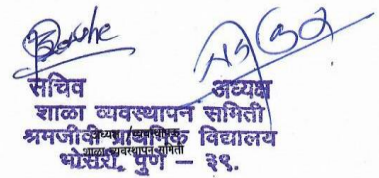 सचिव अध्यक्ष
शाळा व्यवस्थापन समिती
श्रमजीवी प्राथमिक विद्यालय
अध्यक्ष
शाळा व्यवस्थापन समिती
भोसरी, पुणे – ३९.